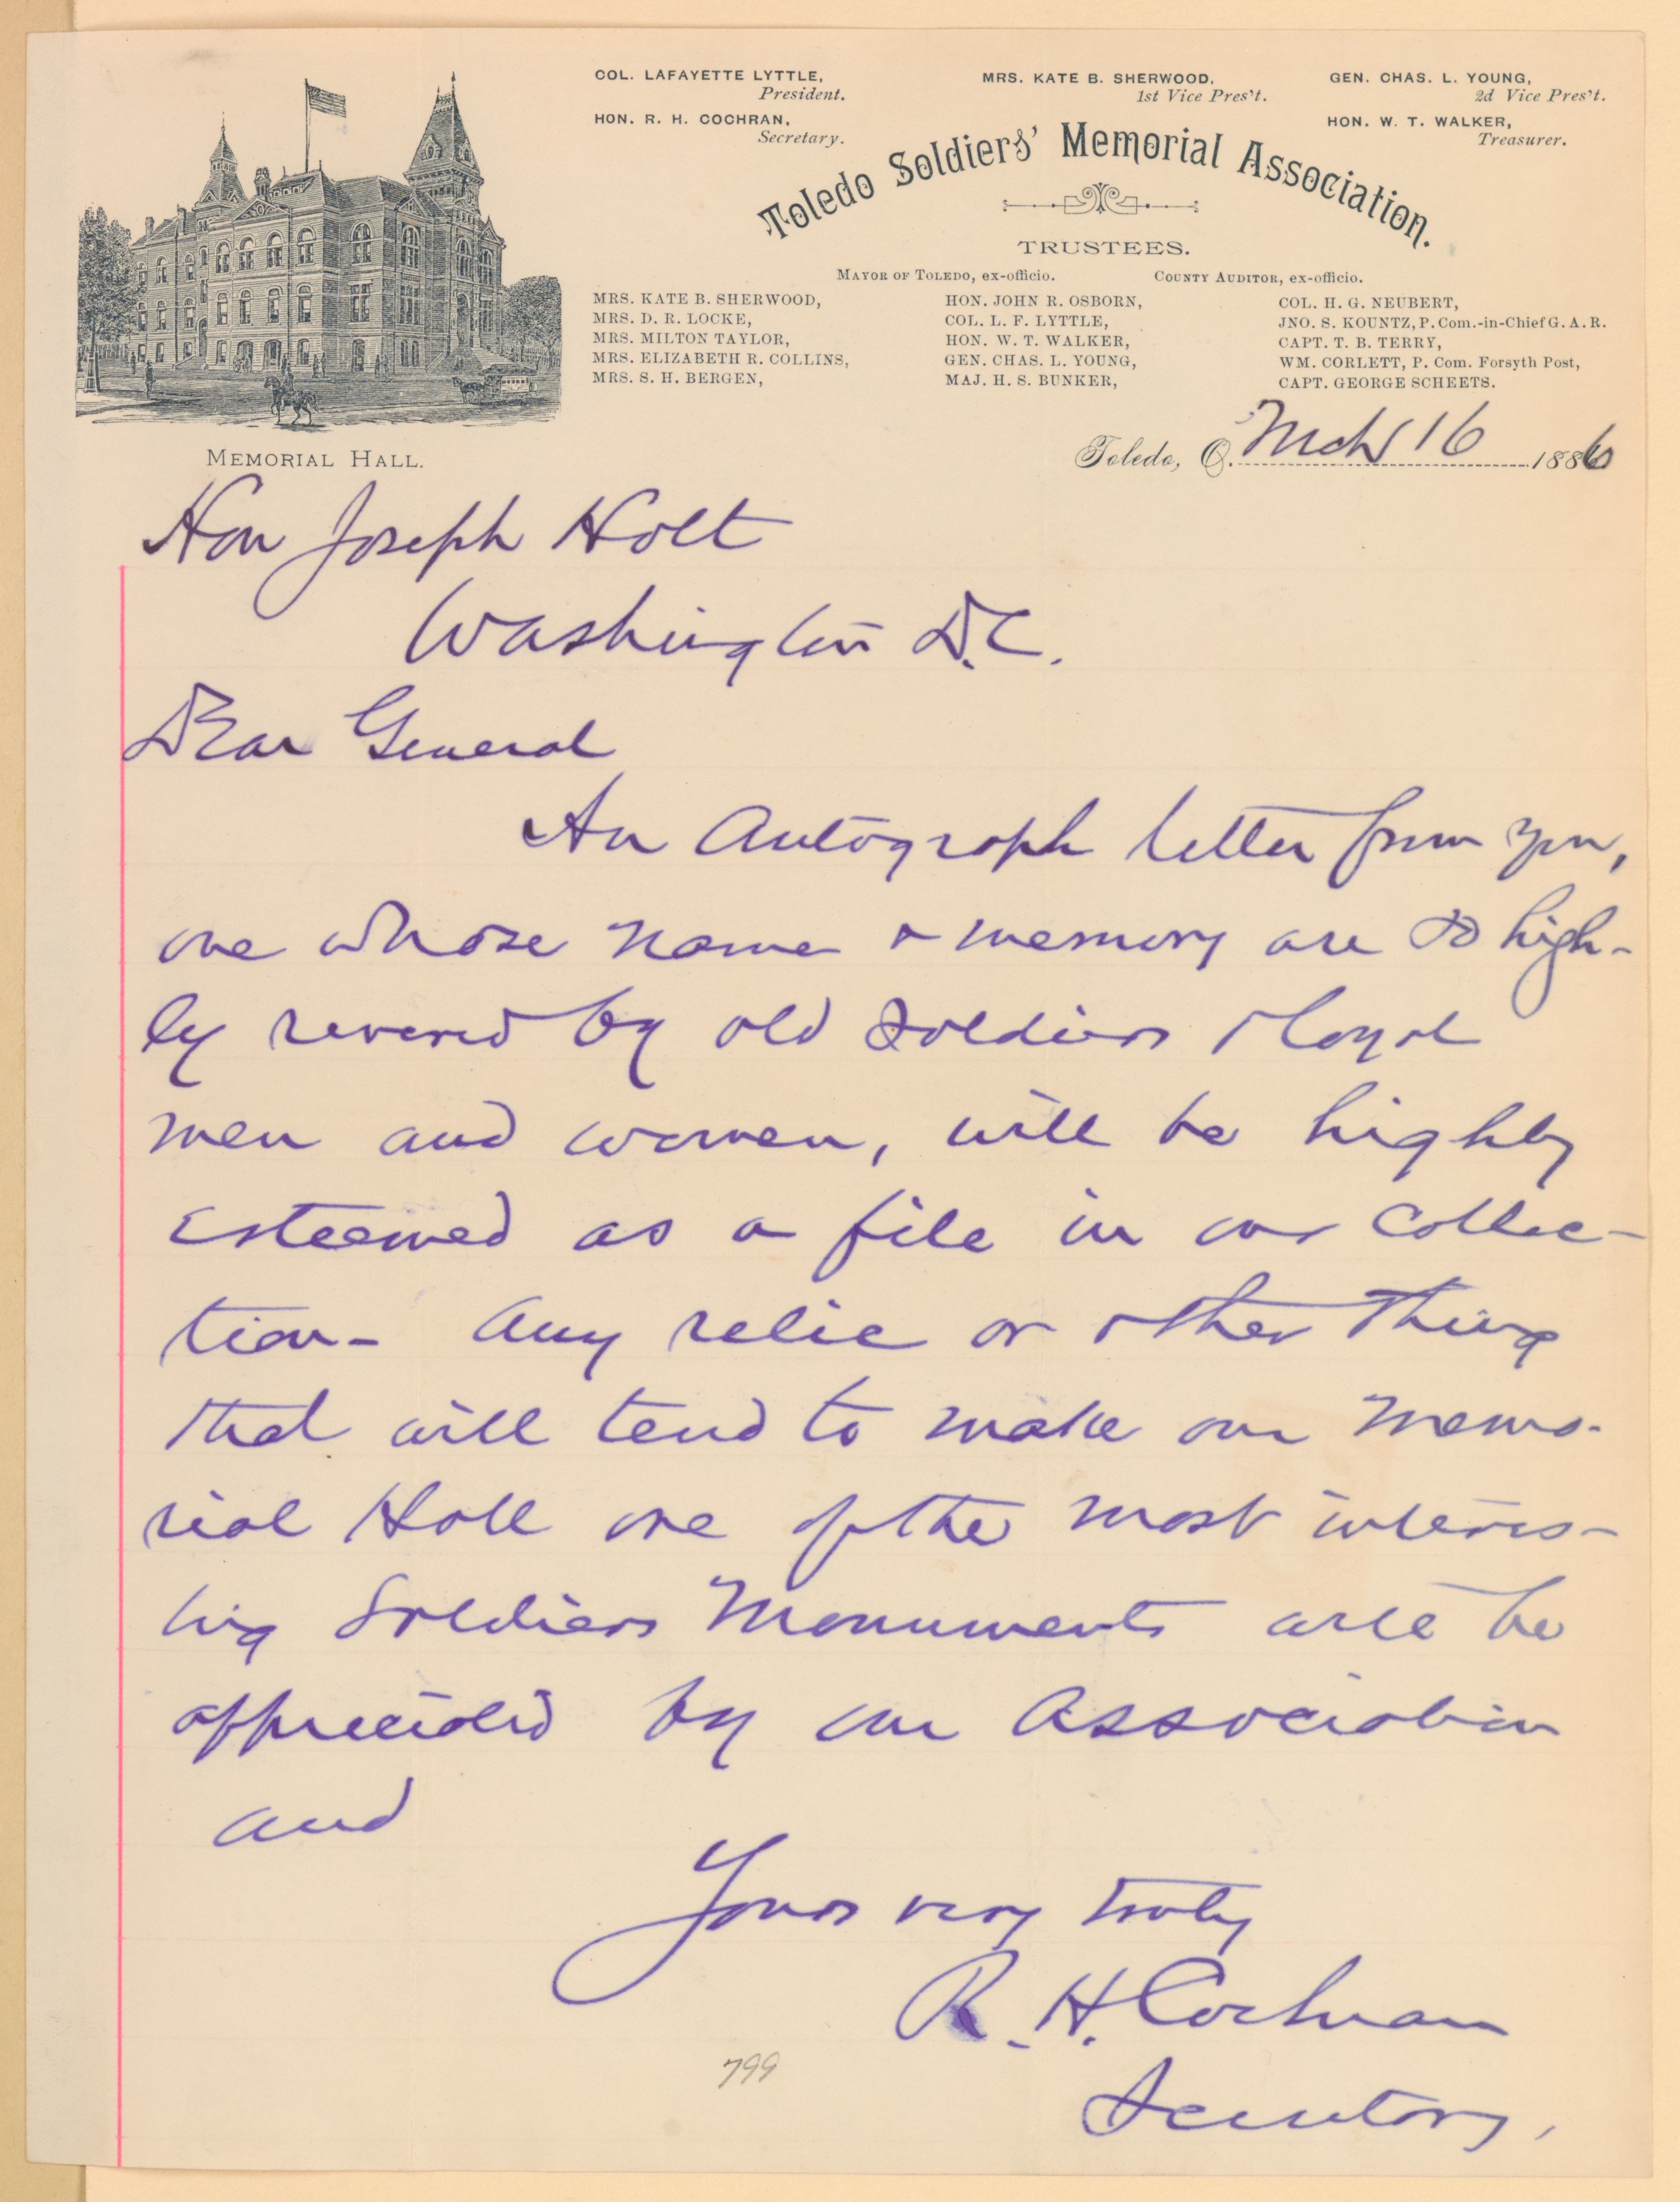 COL. LAFAYETTE LYTTLE,
President.
HON. R. H. COCHRAN,
Secretary.
MRS. KATE B. SHERWOOD,
1st Vice Pres't.
GEN. CHAS. L. YOUNG,
2d Vice Pres't.
HON. W. T. WALKER,
Treasurer.
Toledo Soldiers' Memorial Association.
TRUSTEES.
MAYOR OF TOLEDO, ex-officio. COUNTY AUDITOR, ex-officio.
MRS. KATE B. SHERWOOD,
MRS. D. R. LOCKE,
MRS. MILTON TAYLOR,
MRS. ELIZABETH R. COLLINS,
MRS. S. H. BERGEN,
HON. JOHN R. OSBORN,
COL. L. F. LYTTLE,
HON. W. T. WALKER,
GEN. CHAS. L. YOUNG,
MAJ. H. S. BUNKER,
COL. H. G. NEUBERT,
JNO. S. KOUNTZ, P. Com.-in-Chief G. A. R.
CAPT. T. B. TERRY,
WM. CORLETT, P. Com. Forsyth Post,
CAPT. GEORGE SCHEETS.
MEMORIAL HALL.
Toledo, O. Mch 16 1886
Hon Joseph Holt
Washington D.C.
Dear General
An Autograph letter from you,
one whose name & memory are so high-
ly revered by old soldiers & loyal
men and women, will be highly
esteemed as a file in our collec-
tion- Any relic or other thing
that will tend to make our Memo-
rial Hall one of the most interes-
ting Soldiers Monuments will be
appreciated by our Association
and
Yours very truly
R. H. Cochran
Secretary,
799